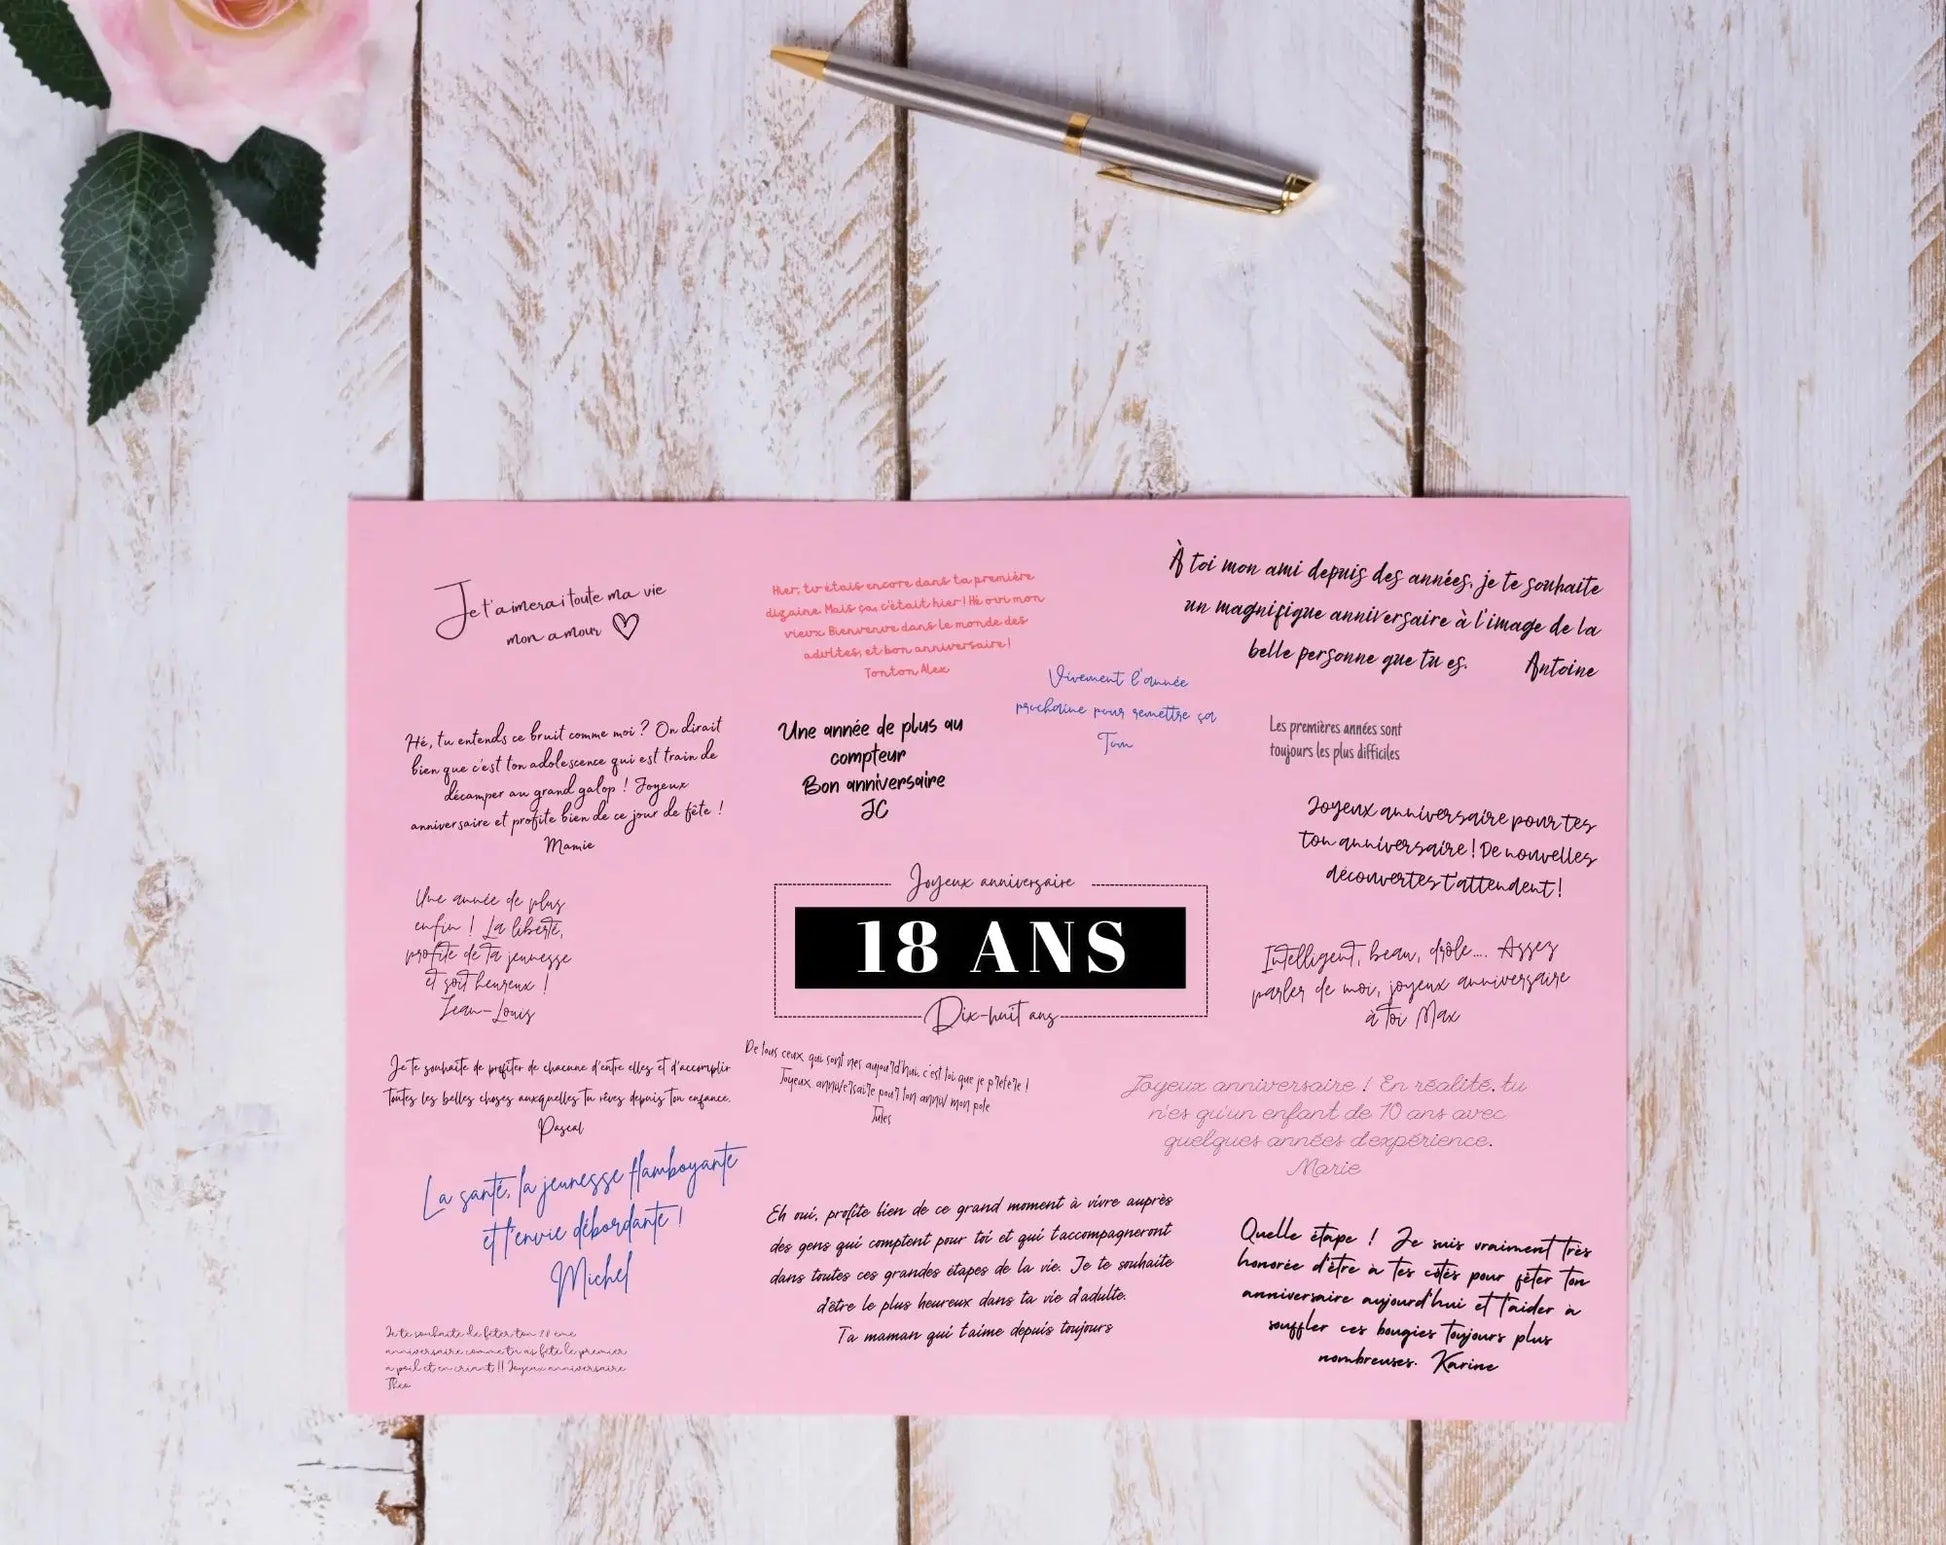 Je t'aimerai toute ma vie
mon amour
Hier, tu étais encore dans ta première
dizaine. Mais ça, c'était hier ! Hé oui mon
vieux. Bienvenue dans le monde des
adultes, et bon anniversaire !
Tonton Alex
À toi mon ami depuis des années, je te souhaite
un magnifique anniversaire à l'image de la
belle personne que tu es. Antoine
Vivement l'année
prochaine pour remettre ça
Tom
Hé, tu entends ce bruit comme moi ? On dirait
bien que c'est ton adolescence qui est train de
décamper au grand galop ! Joyeux
anniversaire et profite bien de ce jour de fête !
Mamie
Une année de plus au
compteur
Bon anniversaire
JC
Les premières années sont
toujours les plus difficiles
Joyeux anniversaire pour tes
ton anniversaire ! De nouvelles
découvertes t'attendent !
Une année de plus
enfin ! La liberté,
profite de ta jeunesse
et soit heureux !
Jean-Louis
Joyeux anniversaire
18 ANS
Dix-huit ans
Intelligent, beau, drôle.... Assez
parler de moi, joyeux anniversaire
à toi Max
Je te souhaite de profiter de chacune d'entre elles et d'accomplir
toutes les belles choses auxquelles tu rêves depuis ton enfance.
Pascal
De tous ceux qui sont nes aujourd'hui, c'est toi que je préfère !
Joyeux anniversaire pour ton anniv mon pote
Jules
Joyeux anniversaire ! En réalité, tu
n'es qu'un enfant de 10 ans avec
quelques années d'expérience.
Marie
La santé, la jeunesse flamboyante
et l'envie débordante !
Michel
Eh oui, profite bien de ce grand moment à vivre auprès
des gens qui comptent pour toi et qui t'accompagneront
dans toutes ces grandes étapes de la vie. Je te souhaite
d'être le plus heureux dans ta vie d'adulte.
Ta maman qui t'aime depuis toujours
Quelle étape ! Je suis vraiment très
honorée d'être à tes côtés pour fêter ton
anniversaire aujourd'hui et t'aider à
souffler ces bougies toujours plus
nombreuses. Karine
Je te souhaite de fêter ton 18 eme
anniversaire comme tu as fêté le premier
à poil et en criant !! Joyeux anniversaire
Théo